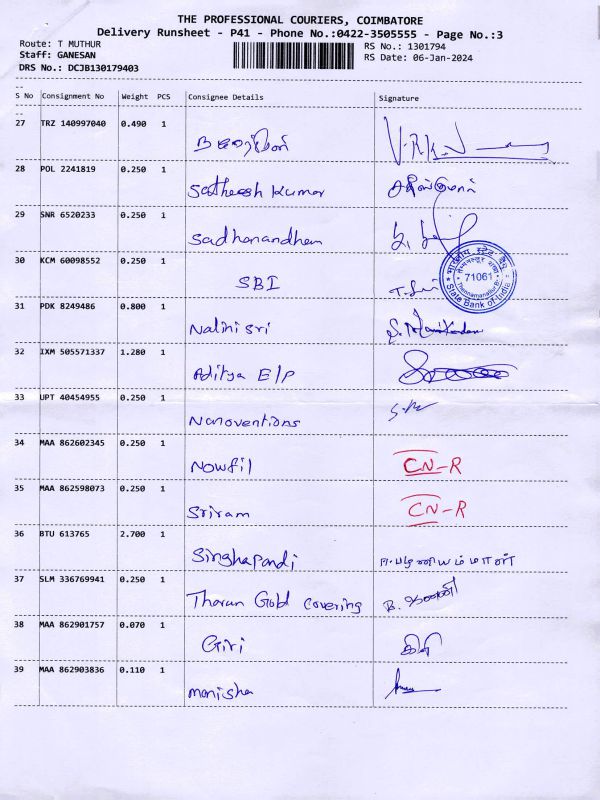 THE PROFESSIONAL COURIERS, COIMBATORE
Delivery Runsheet - P41 - Phone No.:0422-3505555 - Page No.:3
Route: T MUTHUR
RS No.: 1301794
Staff: GANESAN
RS Date: 06-Jan-2024
DRS No.: DCJB130179403
S No Consignment No Weight PCS Consignee Details Signature
27 TRZ 140997040 0.490 1
28 POL 2241819 0.250 1 Satheesh kumar
29 SNR 6520233 0.250 1 Sadhanandham
30 KCM 60098552 0.250 1 SBI
71061
State Bank of India
31 PDK 8249486 0.800 1 Nalini sri
32 IXM 505571337 1.280 1 Aditya E/P
33 UPT 40454955 0.250 1 Nanoventions
34 MAA 862602345 0.250 1 Nowfil CN-R
35 MAA 862598073 0.250 1 Sriram CN-R
36 BTU 613765 2.700 1 Singhapandi
37 SLM 336769941 0.250 1 Tharun Gold covering
38 MAA 862901757 0.070 1 Giri கிரி
39 MAA 862903836 0.110 1 manisha